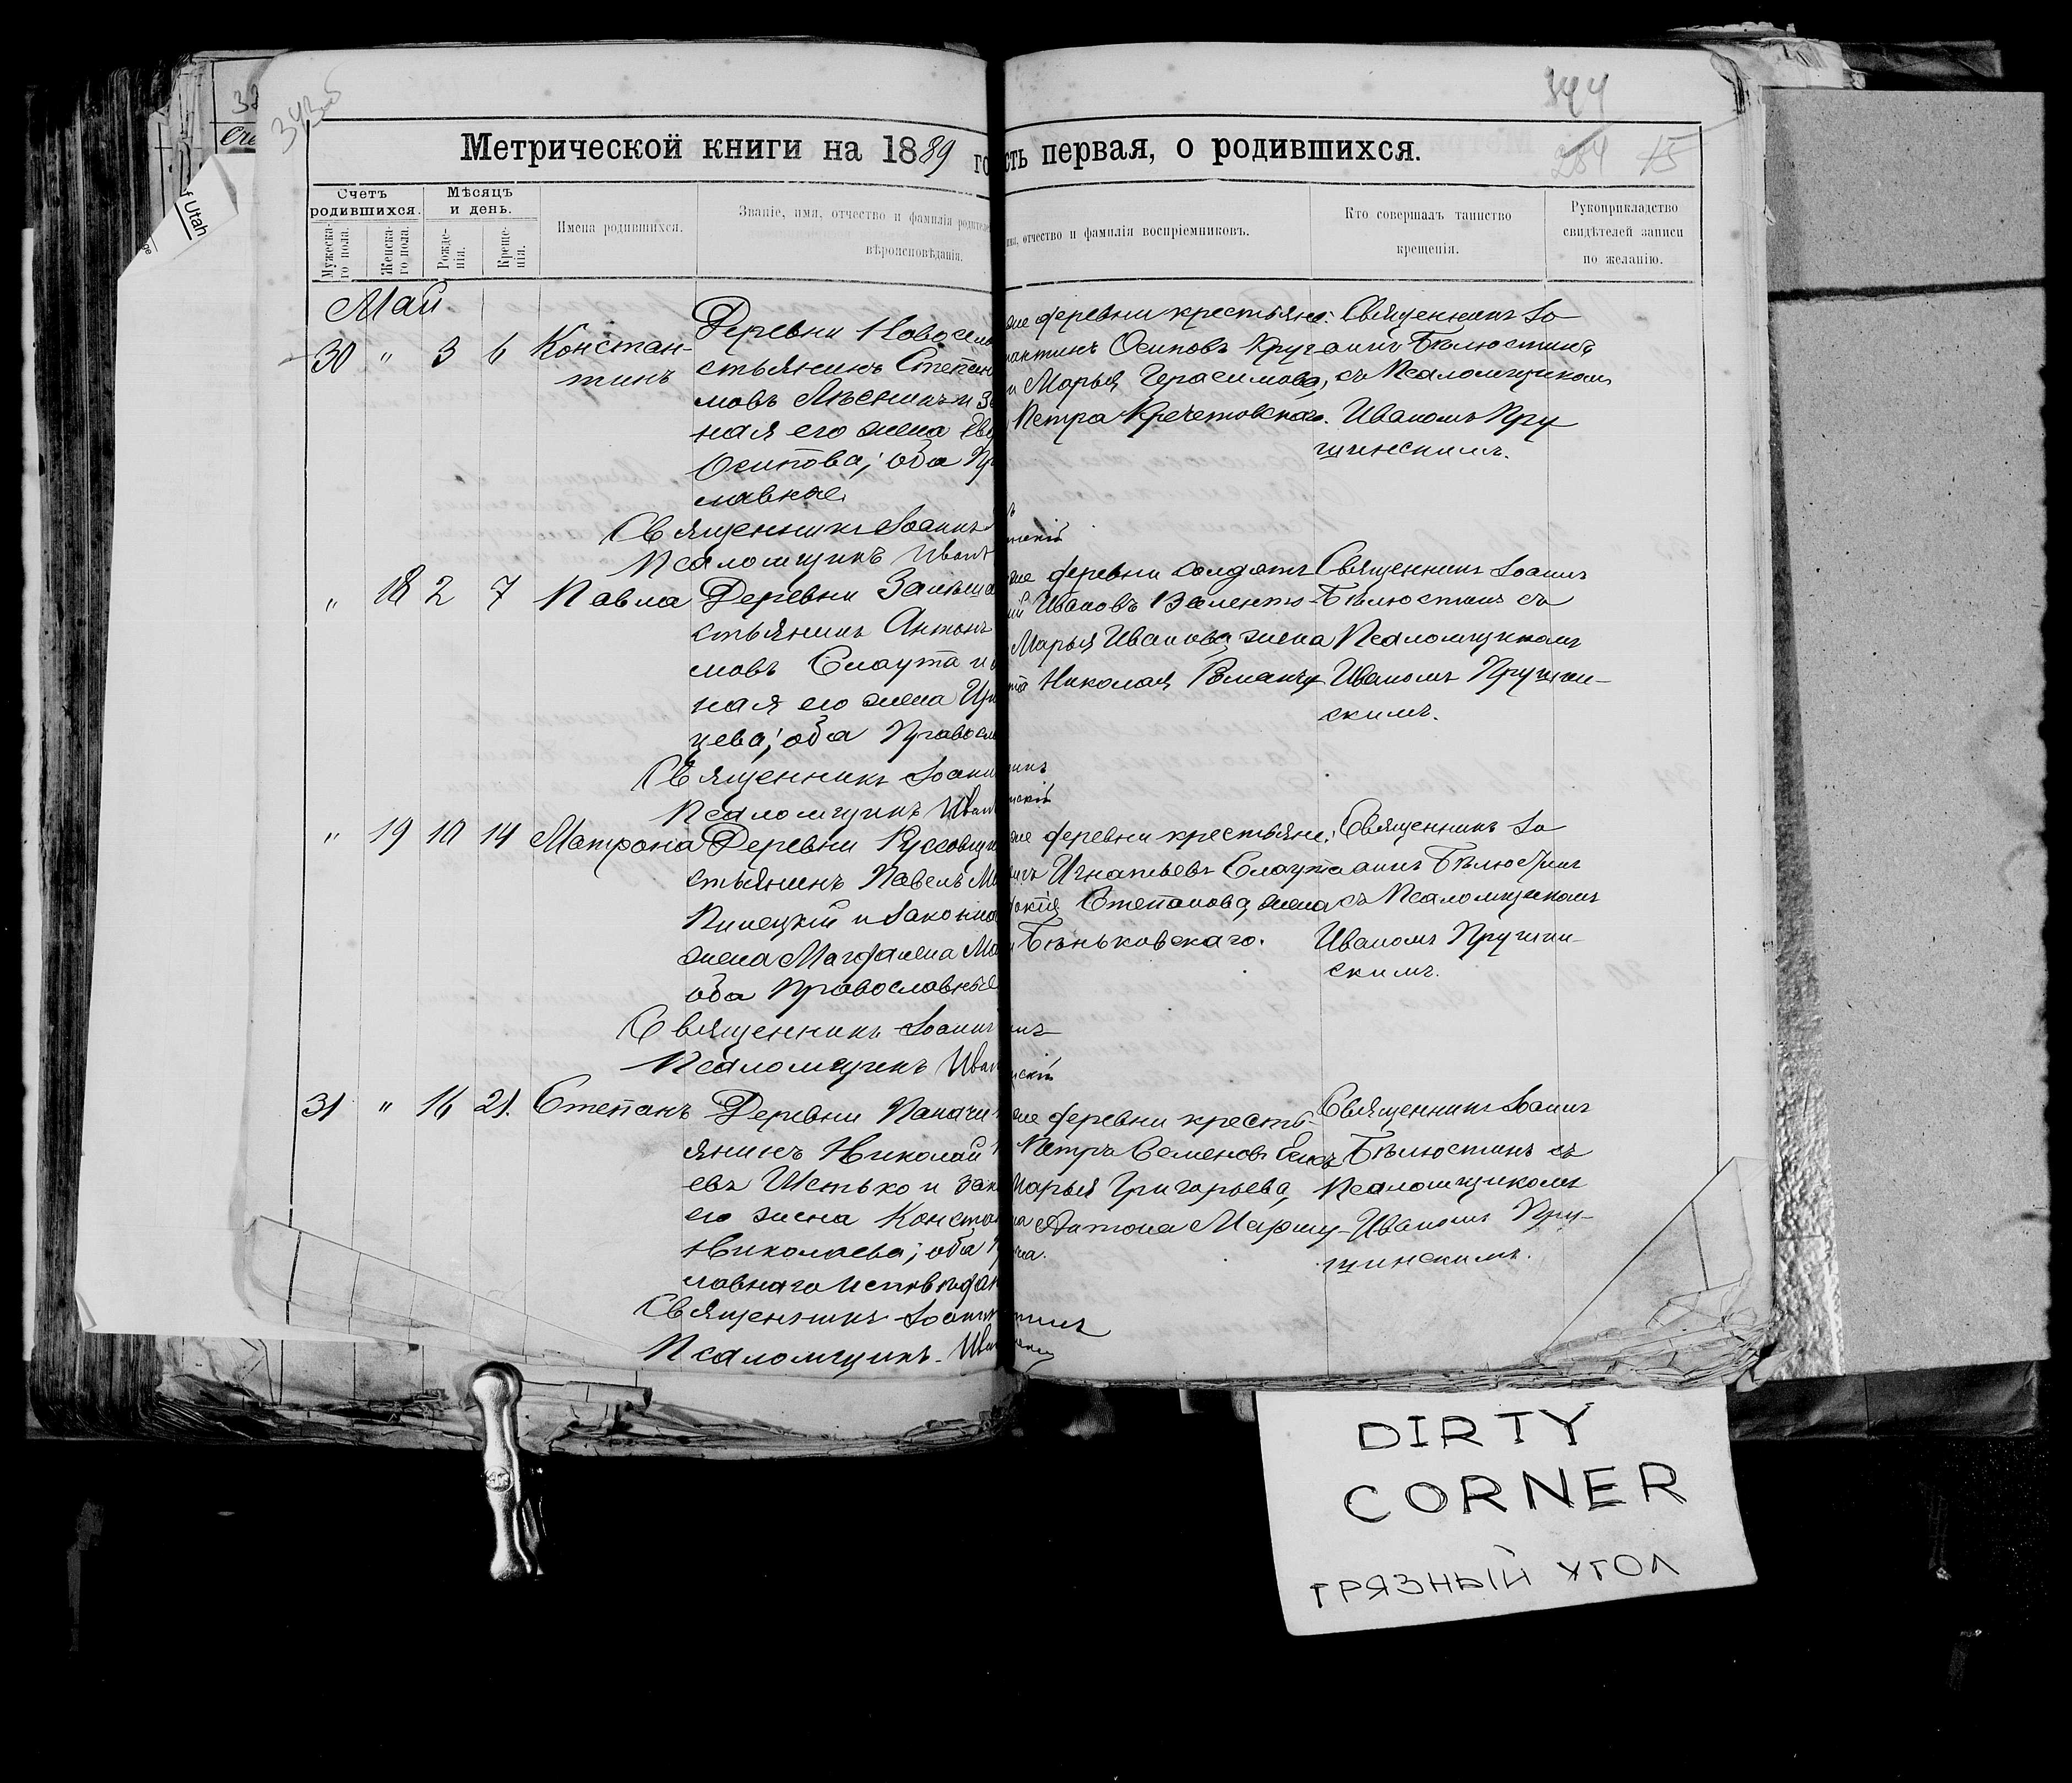 343об
344
284 15
f Utah
Метрической книги на 1889 го
сть первая, о родившихся.
Счетъ родившихся.
Мужеска-го пола.
Женска-го пола.
Мѣсяцъ и день.
Рожде-нія.
Креще-нія.
Имена родившихся.
Званіе, имя, отчество и фамилія родителе
вѣроисповѣданія.
отчество и фамилія воспріемниковъ.
Кто совершалъ таинство
крещенія.
Рукоприкладство
свидѣтелей записи
по желанію.
Май
30 " 3 6 Констан-
тинъ
Деревни Новосел
стьянинъ Степан
мовъ Лѣсникъ и за
ная его жена Ев
Осипова; оба Пр
лавные.
Священникъ Іоаннъ
Псаломщикъ Иван
же деревни крестьяне:
антинъ Осиповъ Круг
и Марья Герасимова,
Петра Кречетовскаго.
Священникъ Іо
аннъ Бѣлюстинъ
съ Псаломщикомъ
Иваномъ Пру
шинскимъ.
" 18 2 7 Павла
Деревни Залѣша
стьянинъ Антонъ
мовъ Слаута и
ная его жена Ири
цева; оба Правосл
Священникъ Іоанн
Псаломщикъ Иван
же деревни солдатъ
Ивановъ
Марья Иванова, жена
Николая
Священникъ Іоаннъ
Бѣлюстинъ съ
Псаломщикомъ
Иваномъ Прушин-
скимъ.
" 19 10 14 Матрона
Деревни
стьянинъ Павелъ Ма
и законна
жена Магдалена Ма
оба Православные
Священникъ Іоанн
Псаломщикъ Иван
же деревни крестьяне:
Игнатьевъ Слаута
Степанова, жена
Бѣньковскаго.
Священникъ Іо
аннъ Бѣлюстинъ
съ Псаломщикомъ
Иваномъ Прушин-
скимъ.
31 " 16 21. Степанъ
Деревни
янинъ Николай
евъ Шетько и зак
его жена Конста
Николаева; оба Пр
лавнаго исповѣдан
Священникъ Іоанн
Псаломщикъ Иван
же деревни кресть-
Петръ Семеновъ
Марья Григорьева,
Антона
Священникъ Іоаннъ
Бѣлюстинъ съ
Псаломщикомъ
Иваномъ Пру-
шинскимъ.
DIRTY
CORNER
ГРЯЗНЫЙ УГОЛ